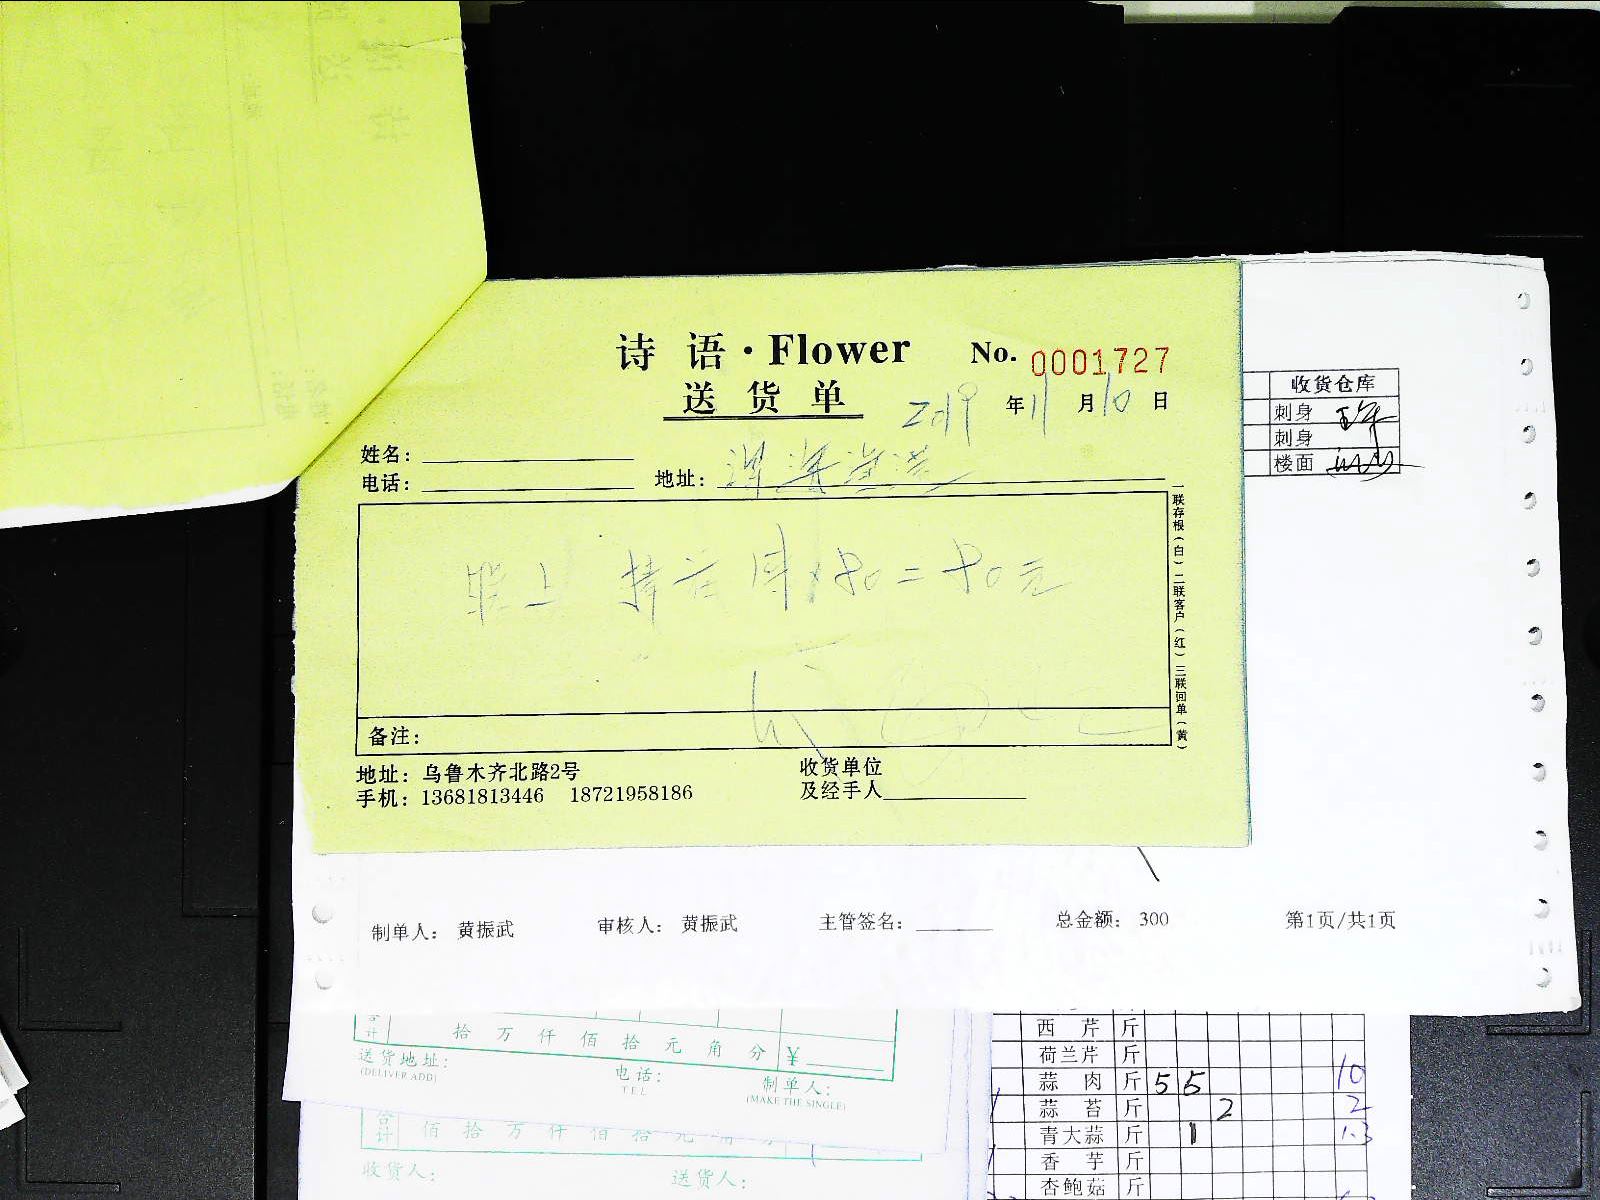 诗 语·Flower No. 0001727
送 货 单 2019 年 11 月 10 日
姓名：
电话： 地址：
×80=80元
备注：
地址：乌鲁木齐北路2号 收货单位
手机：13681813446 18721958186 及经手人
一联存根(白)二联客户(红)三联回单(黄)
收货仓库
刺身
刺身
楼面
制单人： 黄振武 审核人： 黄振武 主管签名： 总金额： 300 第1页/共1页
合计 拾 万 仟 佰 拾 元 角 分 ¥
送货地址： 电话： 制单人：
(DELIVER ADD) TEL (MAKE THE SINGLE)
合计 佰 拾 万 仟 佰 拾 元 角
收货人： 送货人：
西 芹 斤
荷兰芹 斤
蒜 肉 斤 5 5 10
蒜 苔 斤 2 2
青大蒜 斤 1 1.3
香 芋 斤
杏鲍菇 斤